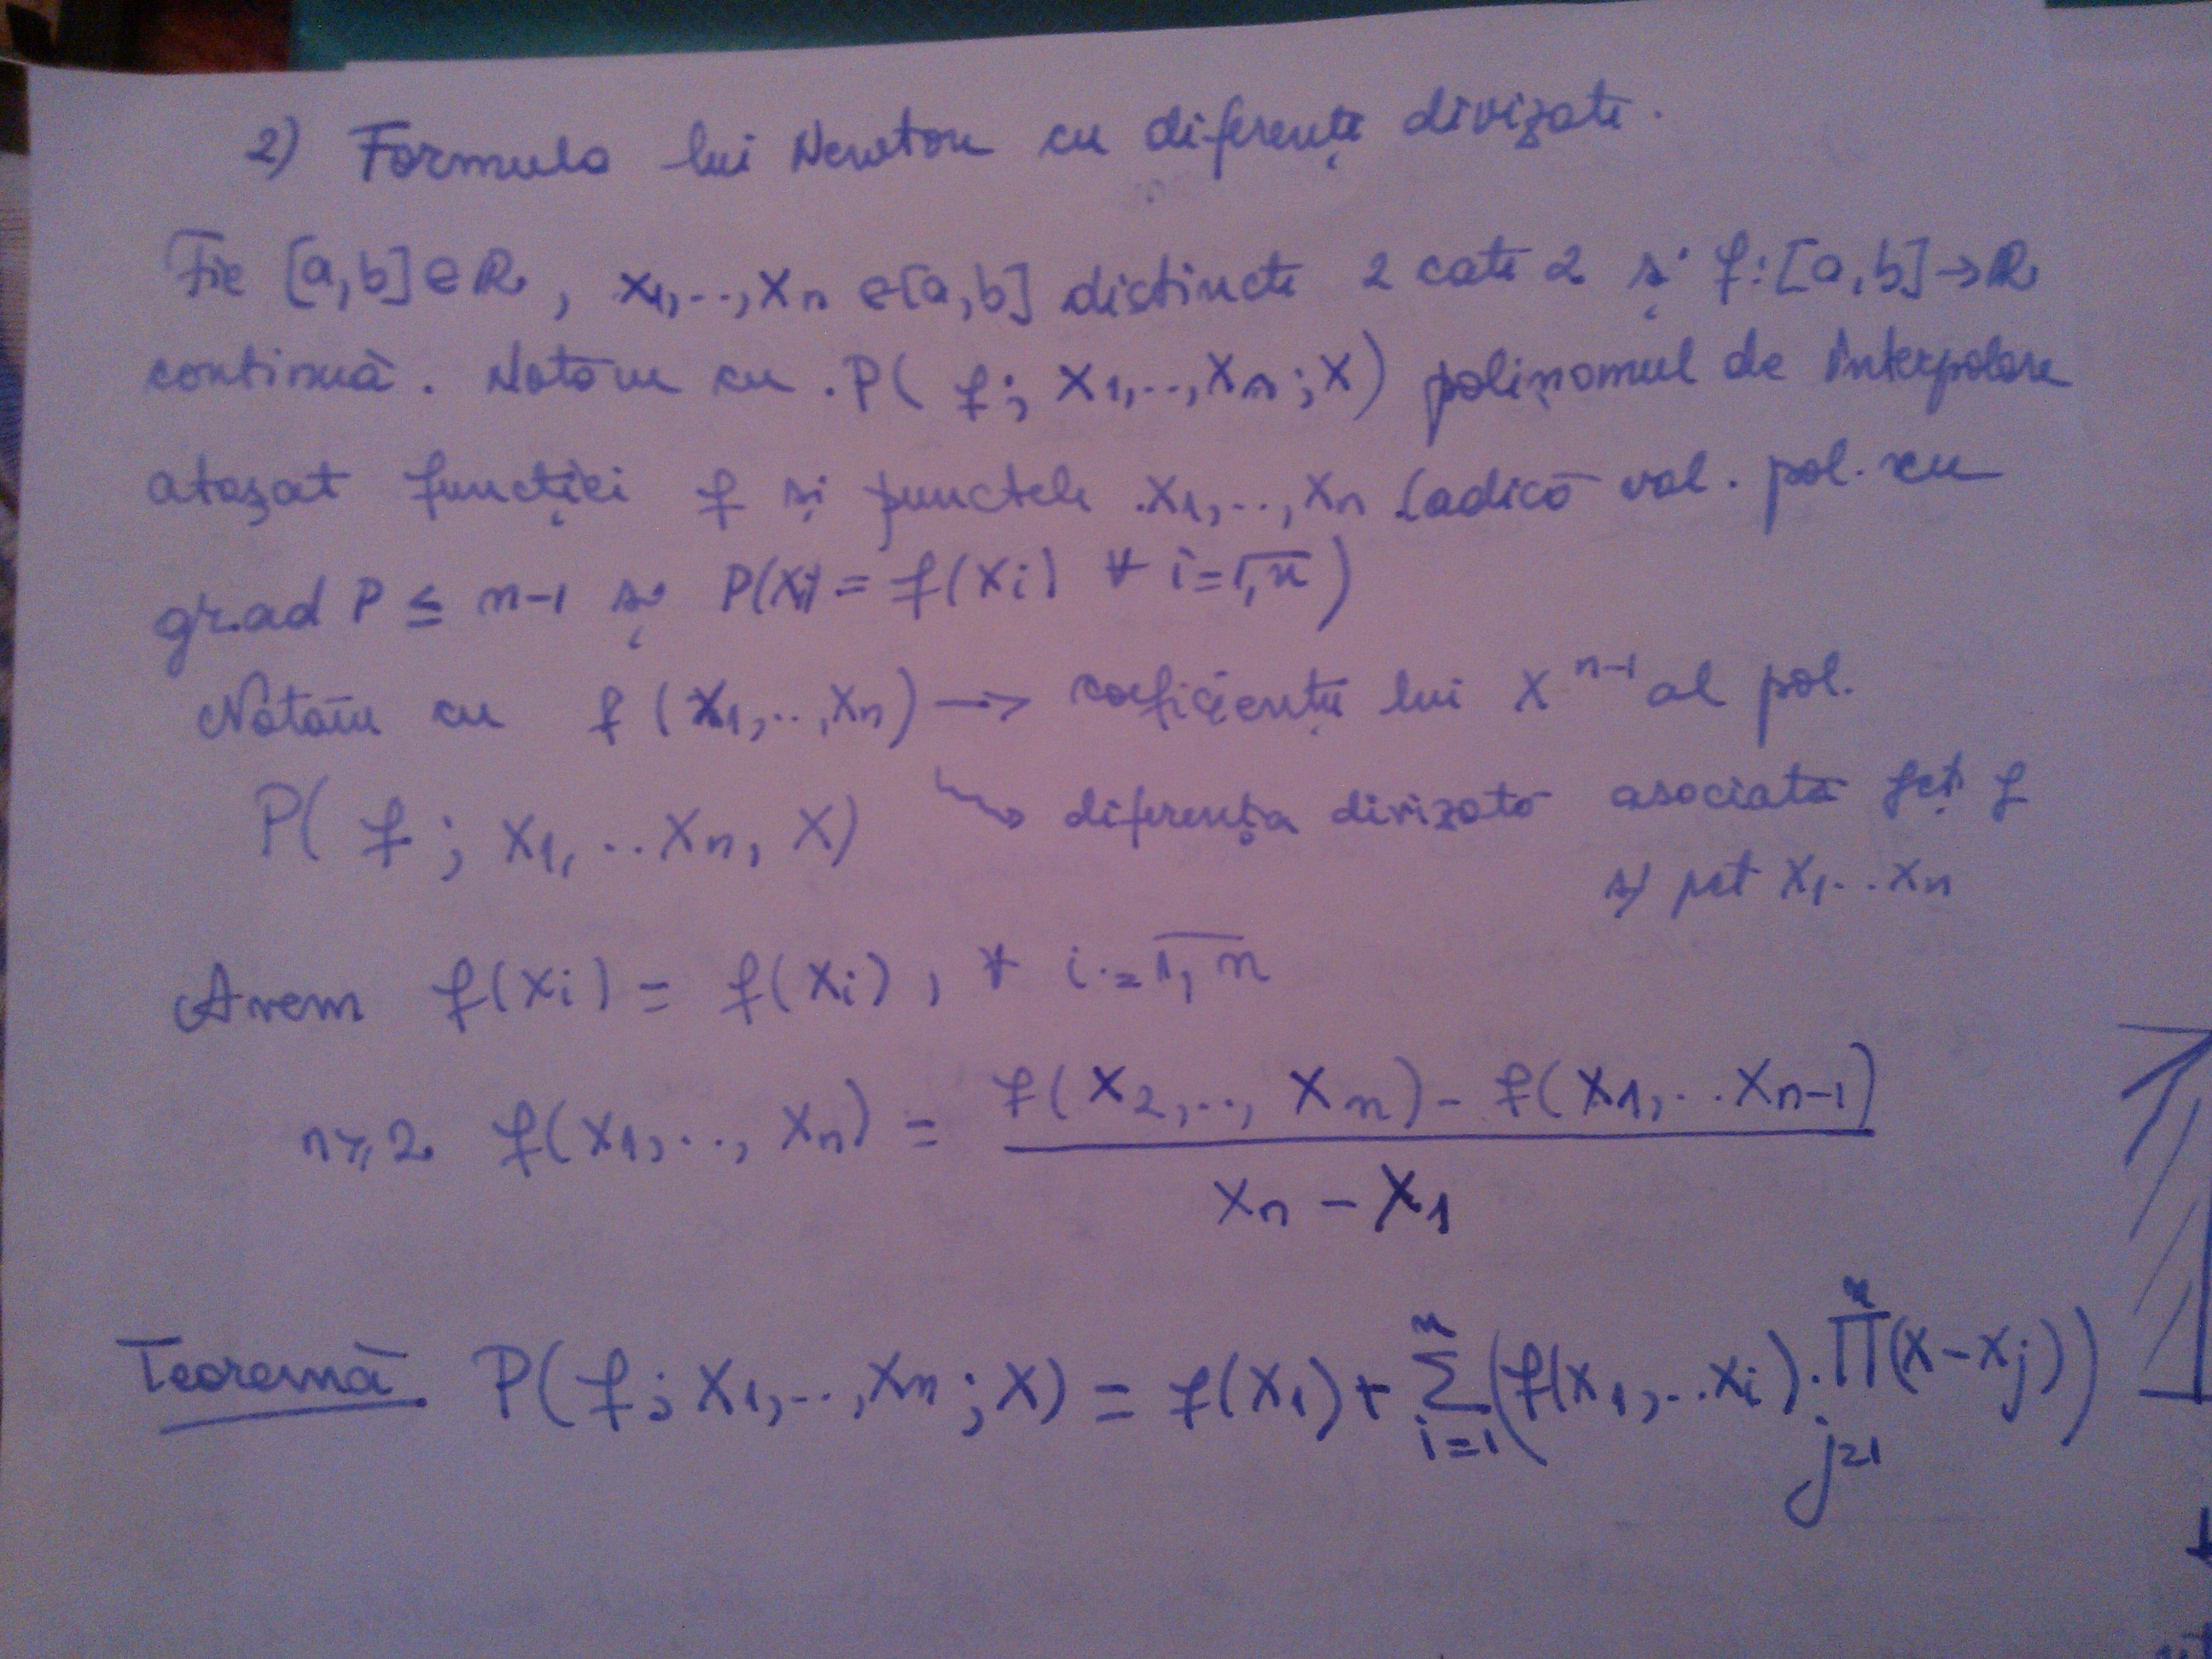 2) Formula lui Newton cu diferențe divizate.
Fie [a,b]∈ℝ, x₁,..,xₙ ∈[a,b] distincte 2 cate 2 și f:[a,b]→ℝ
continuă. Notăm cu .P( f; x₁,..,xₙ; x) polinomul de interpolare
atașat funcției f și punctele x₁,..,xₙ (adică val. pol. cu
grad P ≤ n-1 și P(xᵢ) = f(xᵢ) ∀ i=1,n̅)
Notăm cu f(x₁,..,xₙ) → coeficienții lui xⁿ⁻¹ al pol.
P( f; x₁,..xₙ, x) ⤳ diferența divizată asociată fcț f
și pct x₁..xₙ
Avem f(xᵢ) = f(xᵢ), ∀ i=1,n̅
n≥2 f(x₁,.., xₙ) = f(x₂,.., xₙ) - f(x₁,..xₙ₋₁)
xₙ - x₁
Teoremă P(f; x₁,..,xₙ; x) = f(x₁) + Σⁿᵢ₌₁ (f(x₁,..xᵢ).∏ⁿⱼ₌₁(x-xⱼ))